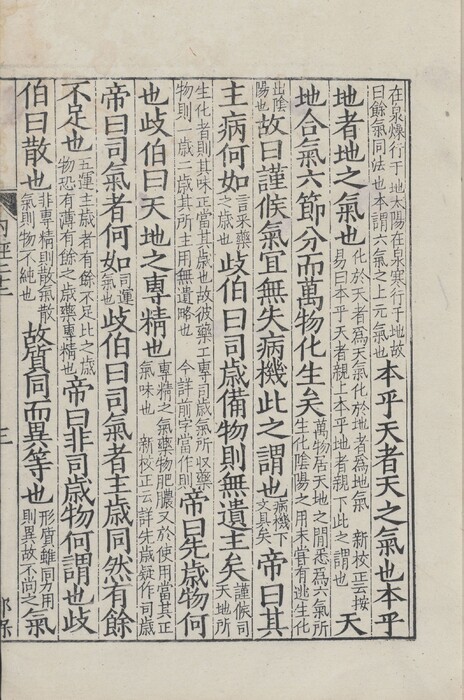 在泉燥行于地太陽在泉寒行于地故曰餘氣同法也本謂六氣之上元氣也本乎天者天之氣也本乎
地者地之氣也化於天者爲天氣化於地者爲地氣 新校正云按易曰本乎天者親上本乎地者親下此之謂也天
地合氣六節分而萬物化生矣萬物居天地之間悉爲六氣所生化陰陽之用未嘗有逃生化
出陰陽也故曰謹候氣宜無失病機此之謂也病機下文具矣帝曰其
主病何如言采藥之歲也歧伯曰司歲備物則無遺主矣謹候司天地所
生化者則其味正當其歲也故彼藥工專司歲氣所收藥物則一歲二歲其所主用無遺略也 今詳前字當作則帝曰先歲物何
也歧伯曰天地之專精也專精之氣藥物肥膿又於使用當其正氣味也 新校正云詳先歲疑作司歲
帝曰司氣者何如司運氣也歧伯曰司氣者主歲同然有餘
不足也五運主歲者有餘不足比之歲物恐有薄有餘之歲藥專精也帝曰非司歲物何謂也歧
伯曰散也非專精則散氣散氣則物不純也故質同而異等也形質雖同力用則異故不尚之氣
三